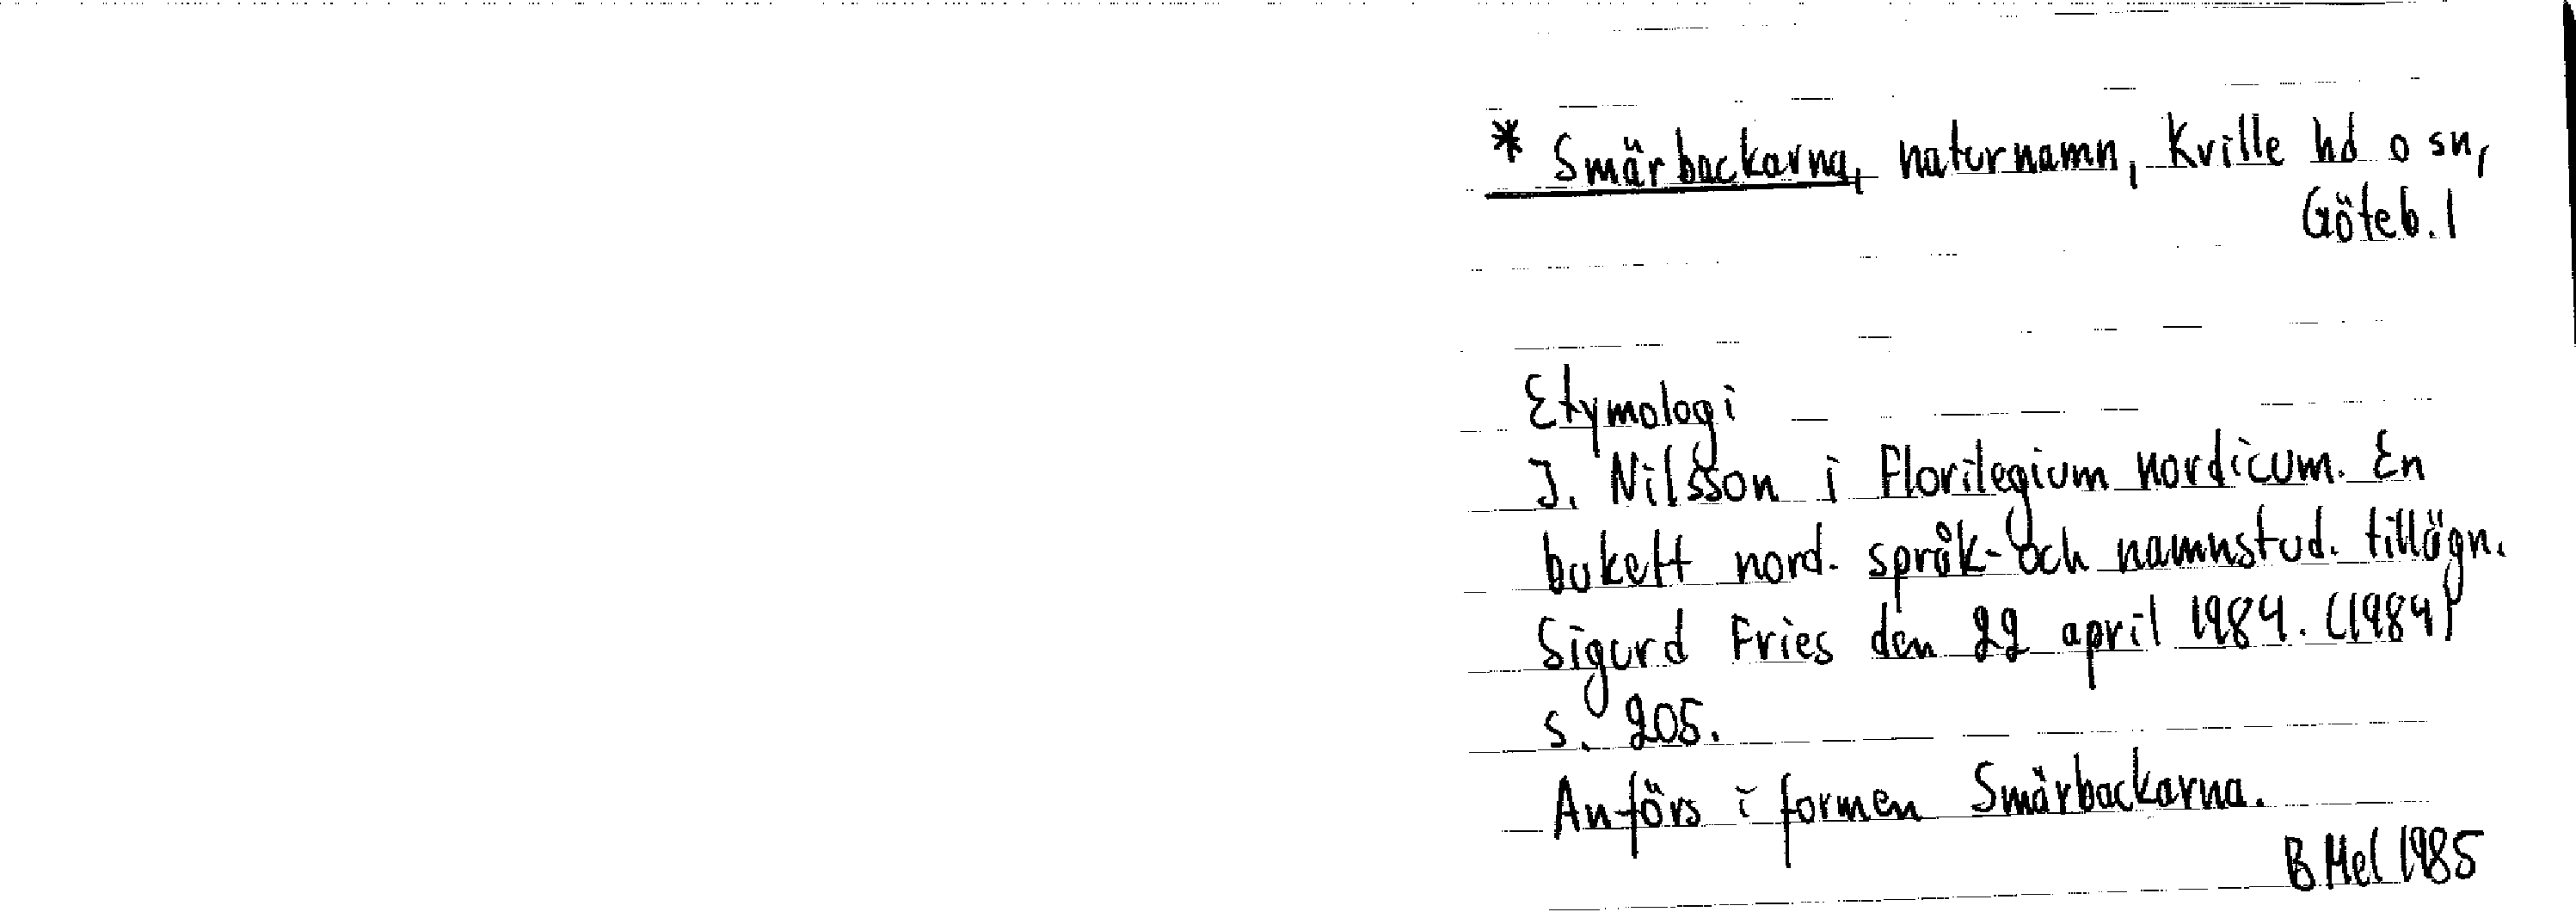 * Smärbackarna, naturnamn, Kville hd o sn,
Göteb. l
Etymologi
I. Nilsson i Florilegium nordicum. En
bukett nord. språk- och namnstud. tillägn.
Sigurd Fries den 22 april 1984. (1984)
s. 205.
Anförs i formen Smärbackarna.
B Mel 1985